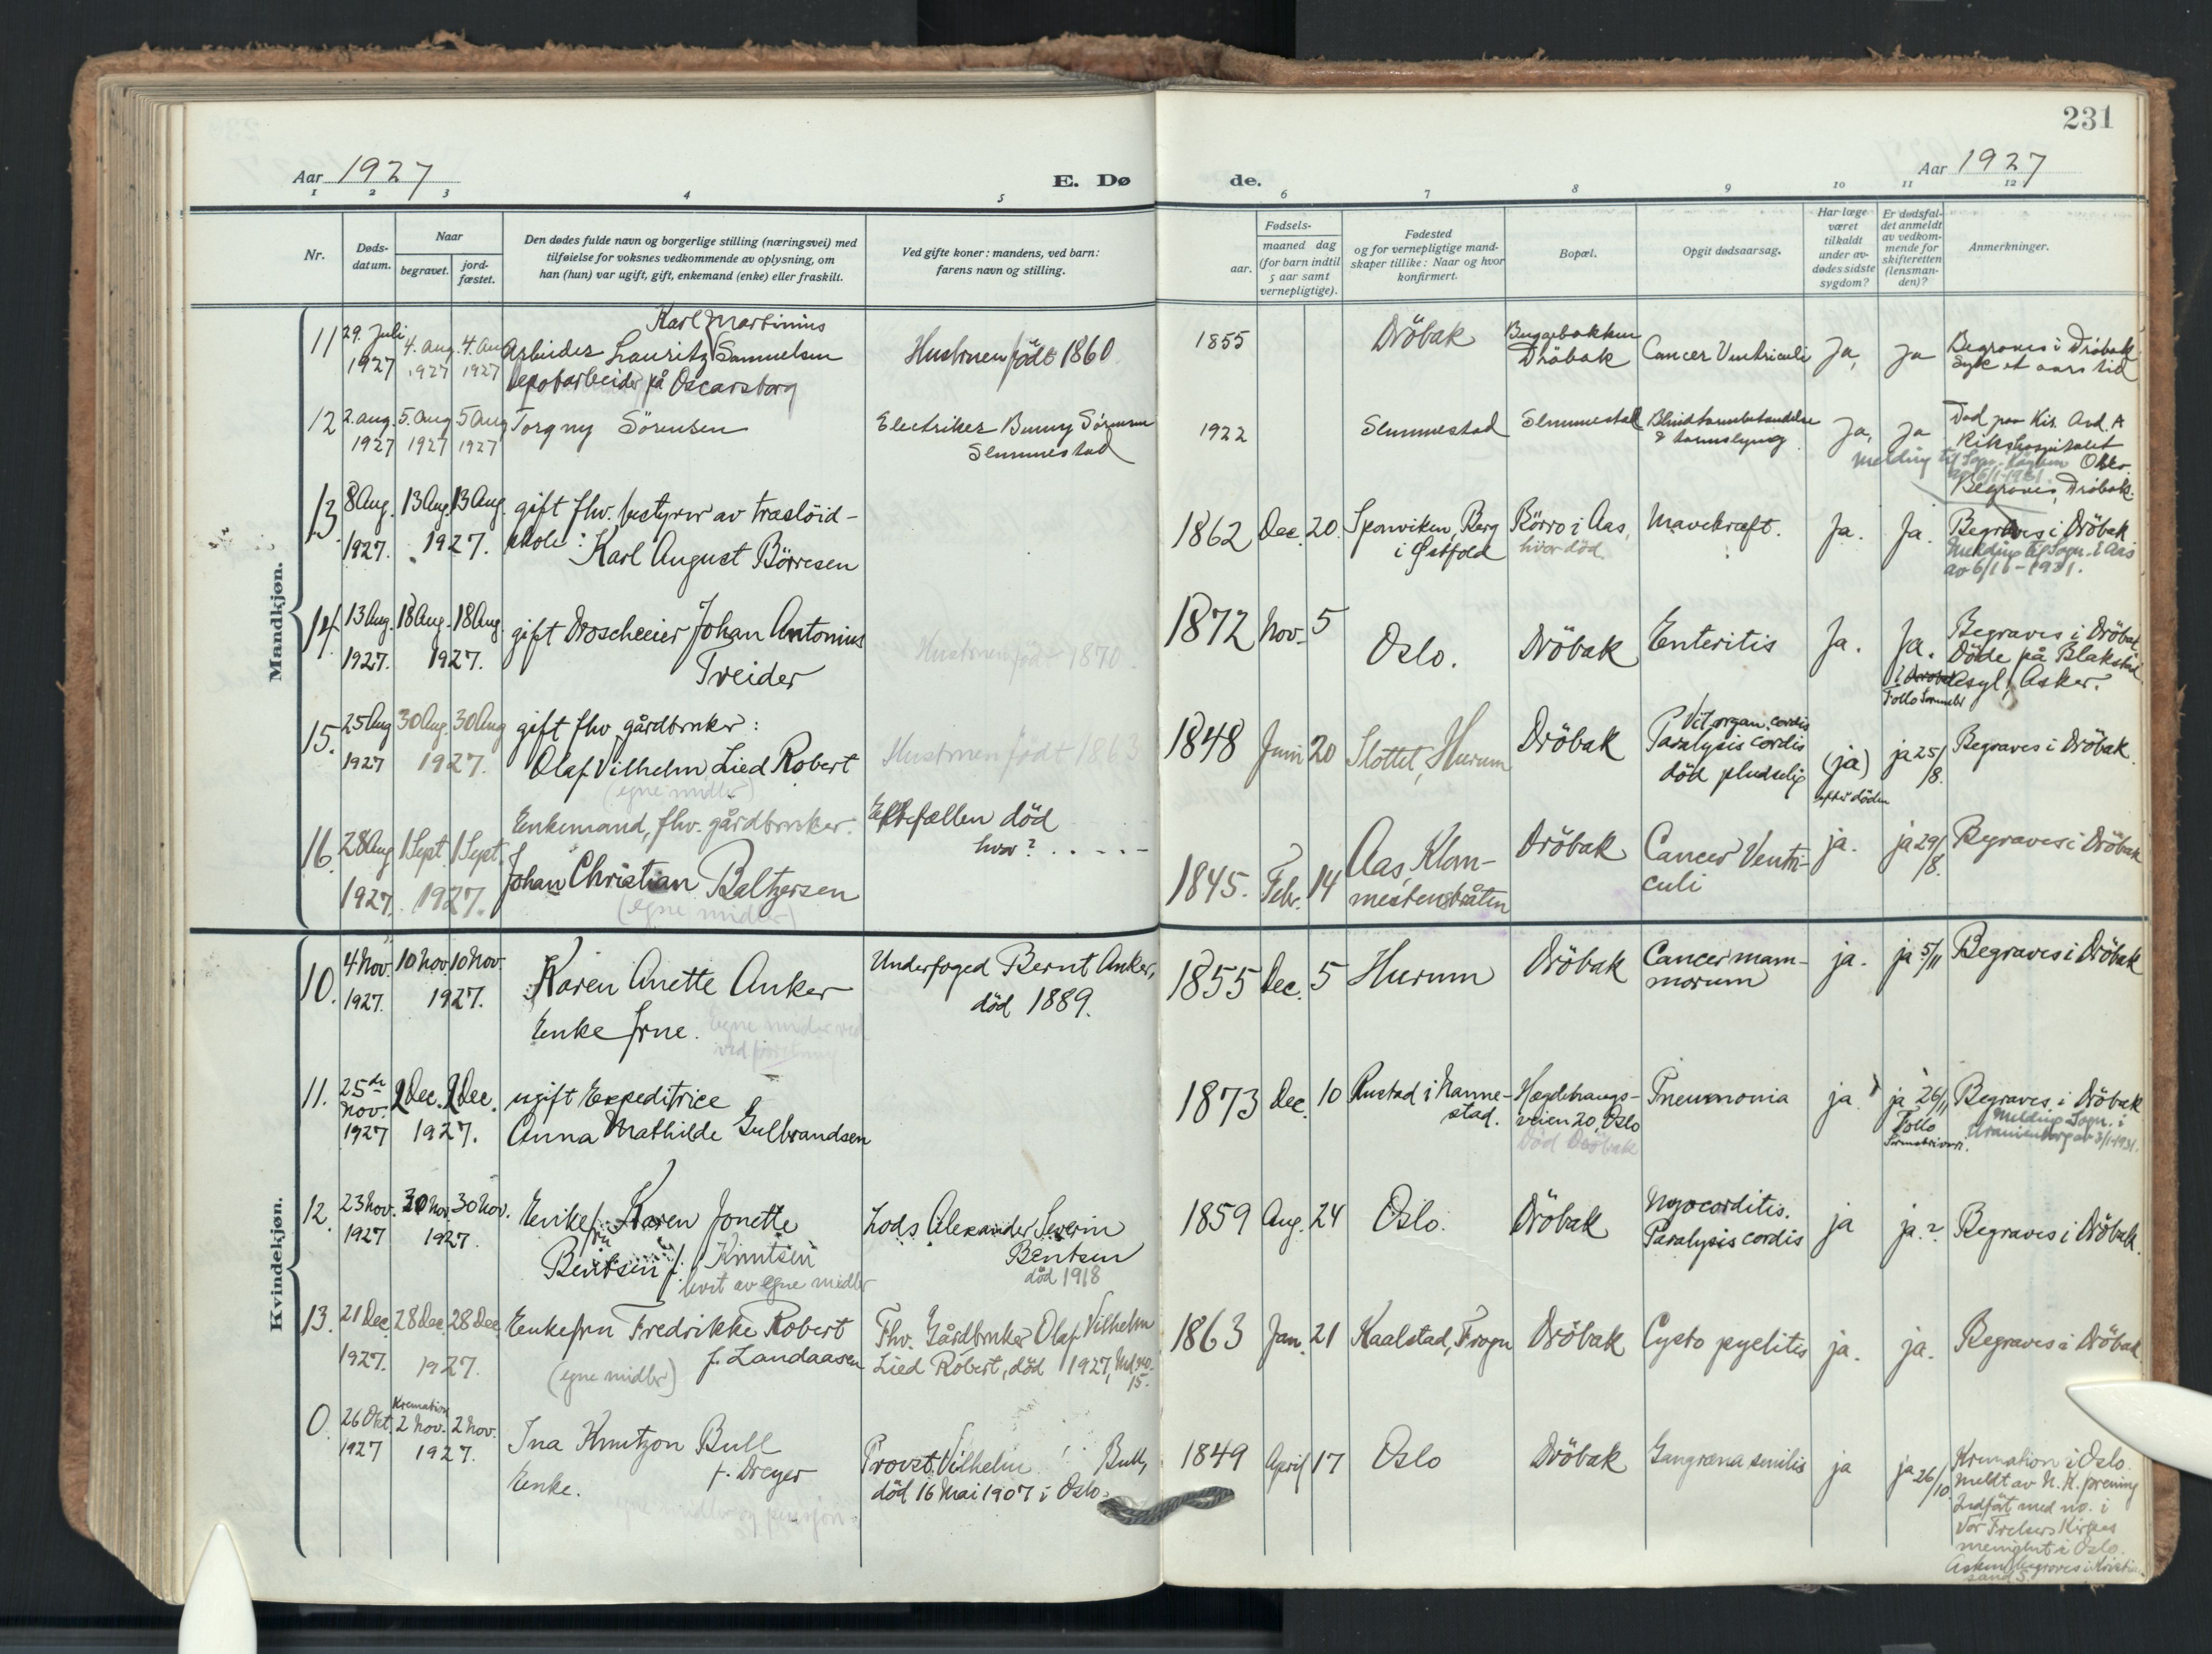 231
Aar 1927
E. Dø
de.
Aar 1927
1 2 3 4 5 6 7 8 9 10 11 12
Nr.
Døds-
datum.
Naar
begravet.
jord-
fæstet.
Den dødes fulde navn og borgerlige stilling (næringsvei) med
tilføielse for voksnes vedkommende av oplysning, om
han (hun) var ugift, gift, enkemand (enke) eller fraskilt.
Ved gifte koner: mandens, ved barn:
farens navn og stilling.
Fødsels-
aar.
maaned dag
(for barn indtil
5 aar samt
vernepligtige).
Fødested
og for vernepligtige mand-
skaper tillike: Naar og hvor
konfirmert.
Bopæl.
Opgit dødsaarsag.
Har læge
været
tilkaldt
under av-
dødes sidste
sygdom?
Er dødsfal-
det anmeldt
av vedkom-
mende for
skifteretten
(lensman-
den)?
Anmerkninger.
Mandkjøn.
11 29. Juli 1927
4. aug. 1927
4. aug 1927
Karl Martinius
Arbeider Lauritz Samuelsen
Depotarbeider på Oscarsborg
Hustruen født 1860
1855
Dröbak
Dröbak
Cancer Ventriculi
Ja,
Ja
Begraves i Dröbak
Syk et aars tid
12 2. aug. 1927
5. aug 1927
5 aug 1927
Torgny Sörensen
Electriker Bunny Sörensen
Slemmestad
1922
Slemmestad
Slemmestad
Blindtarmbetændelse
& tarmslyng
Ja,
Ja
Död paa Kir. Avd. A
Rikshospitalet
Oslo.
Begraves Dröbak.
13 8 Aug. 1927.
13 Aug. 13 Aug.
1927.
gift fhv. bestyrer av træslöid-
skole: Karl August Börresen
1862 Dec. 20.
Sponviken, Berg
i Østfold
Börro i Aas,
hvor död.
Mavekræft.
Ja.
Ja.
Begraves i Dröbak
Melding til Sogn. i Aas
av 6/1 - 1931.
14. 13 Aug. 1927.
18 Aug. 18 Aug.
1927.
gift Droscheeier Johan Antonius
Treider
Hustruen født 1870.
1872 Nov. 5
Oslo.
Dröbak
Enteritis
Ja.
Ja.
Begraves i Dröbak
Döde på Blakstad
Asyl, Asker.
15. 25 Aug 1927
30 Aug. 30 Aug
1927.
gift fhv gårdbruker:
Olaf Vilhelm Lied Robert
(egne midler)
Hustruen født 1863
1848 Juni 20
Slottet, Hurum
Dröbak
Vit. organ. cordis
Paralysis cordis
död pludselig
(ja)
efter döden
ja 25/8.
Begraves i Dröbak.
16. 28 Aug 1927.
1 Sept. 1 Sept.
1927.
Enkemand, fhv. gårdbruker.
Johan Christian Baltzersen
(egne midler)
Ektefællen död
hvor? . . . . .
1845. Febr. 14
Aas, Klom-
mestenbråten
Dröbak
Cancer Ventri-
culi
ja.
ja 29/8.
Begraves i Dröbak
Kvindekjøn.
10. 4 Nov. 1927.
10 Nov 10 Nov.
1927.
Karen Anette Anker
Enke frue.
Underfoged Bernt Anker,
död 1889.
1855 Dec. 5
Hurum
Dröbak
Cancer mam-
morum
ja.
ja 5/11
Begraves i Dröbak
11. 25de Nov. 1927
2 Dec. 2 Dec.
1927.
ugift Expeditrice
Anna Mathilde Gulbrandsen
1873 Dec. 10
Rustad i Nanne-
stad.
Hegdehaugs-
veien 20, Oslo
Död Dröbak
Pneumonia
ja
ja 26/11
Follo
Begraves i Dröbak
Melding Sogn. i
Uranienborg av 3/1-1931.
12. 23 Nov. 1927
30 Nov 30 Nov.
1927.
Enkefru Karen Jonette
Bentsen f. Knutsen
levet av egne midler
Lods Alexander Severin
Bentsen
död 1918
1859 Aug. 24
Oslo.
Dröbak
Myocorditis.
Paralysis cordis
ja
ja?
Begraves i Dröbak.
13. 21 Dec. 1927.
28 Dec. 28 Dec
1927.
Enkefru Fredrikke Robert
f. Landaasen
(egne midler)
Fhv. Gårdbruker Olaf Vilhelm
Lied Robert, död 1927, Md. no. 15.
1863 Jan. 21
Kaalstad, Frogn
Dröbak
Cysto pyelitis
ja.
ja.
Begraves i Dröbak
0. 26 Okt. 1927
Kremation
2 Nov. 2 Nov.
1927.
Ina Knutzon Bull
f. Dreyer
Enke.
egne midler og pension
Provst Vilhelm Bull,
död 16 Mai 1907 i Oslo.
1849 April 17
Oslo
Dröbak
Gangræna senilis
ja
ja 26/10
Kremation i Oslo.
meldt av N. K. forening
Indført med no. i
Vor Frelsers Kirkes
menighet i Oslo.
Asken begraves i Kristian-
sand S.